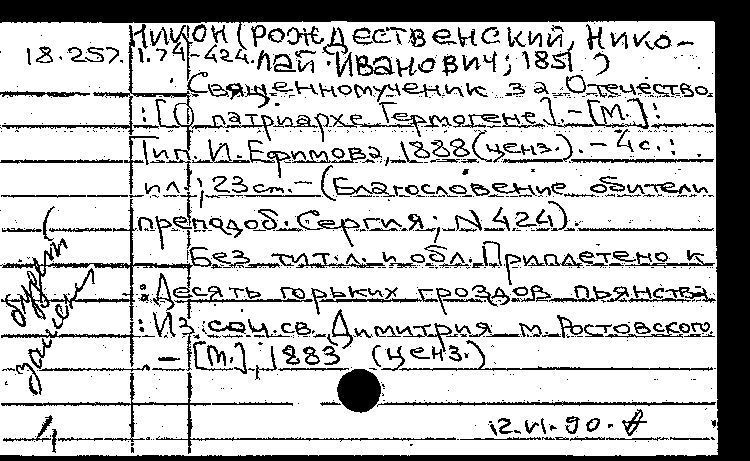 Никон (Рождественский, Нико-
18.257. 1.74-424. лай Иванович; 1851 )
Священномученик за Отечество
: [О патриархе Гермогене]. - [М.]:
Тип. И. Ефимова, 1888 (ценз.). - 4 с.:
ил.; 23 см. - (Благословение обители
преподоб. Сергия; N 424).
Без тит. л. и обл. Приплетено к
: Десять горьких гроздов пьянства
: Из соч. св. Димитрия м. Ростовского
. - [М.], 1883 (ценз.)
будет
12.VI.90.